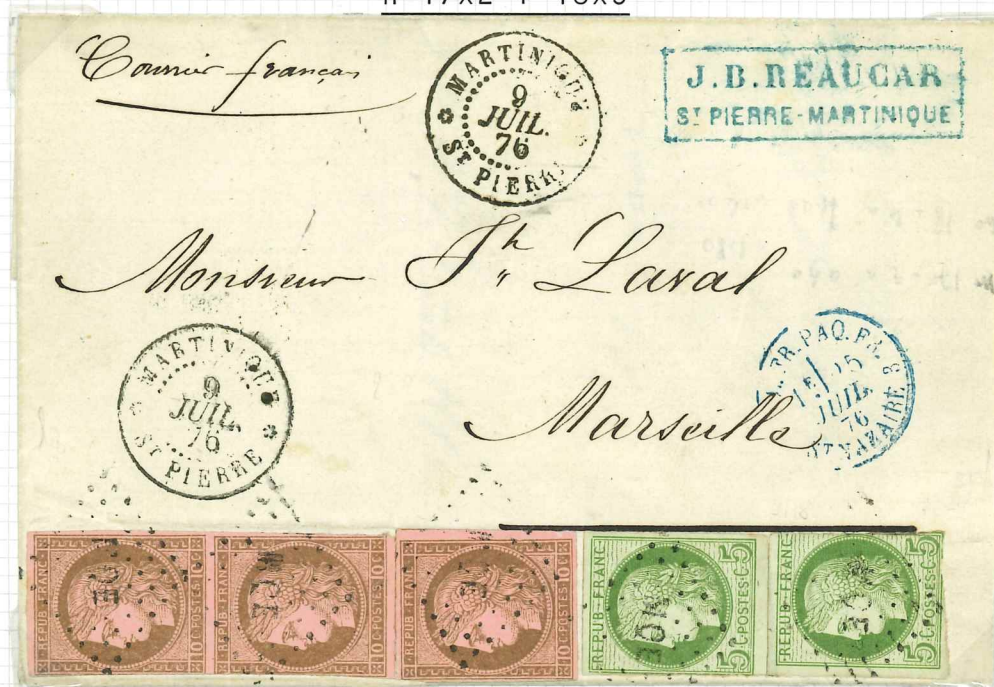 Courrier français
MARTINIQUE
9
JUIL.
76
ST PIERRE
J.B. REAUCAR
ST PIERRE-MARTINIQUE
Monsieur Jh Laval
Marseille
MARTINIQUE
9
JUIL.
76
ST PIERRE
TR. PAQ. FR.
25
JUIL.
76
ST NAZAIRE 3
REPUB·FRANC
10 C·POSTES·10 C
REPUB·FRANC
10 C·POSTES·10 C
REPUB·FRANC
10 C·POSTES·10 C
REPUB·FRANC
5 C·POSTES·5 C
REPUB·FRANC
5 C·POSTES·5 C